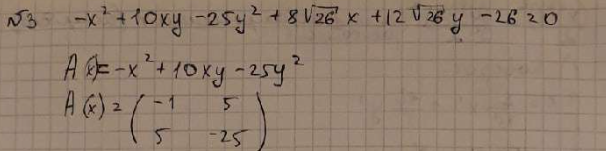 №3 -x² + 10xy - 25y² + 8√26 x + 12√26 y - 26 = 0
A(x) = -x² + 10xy - 25y²
A(x) = ( -1 5
5 -25 )